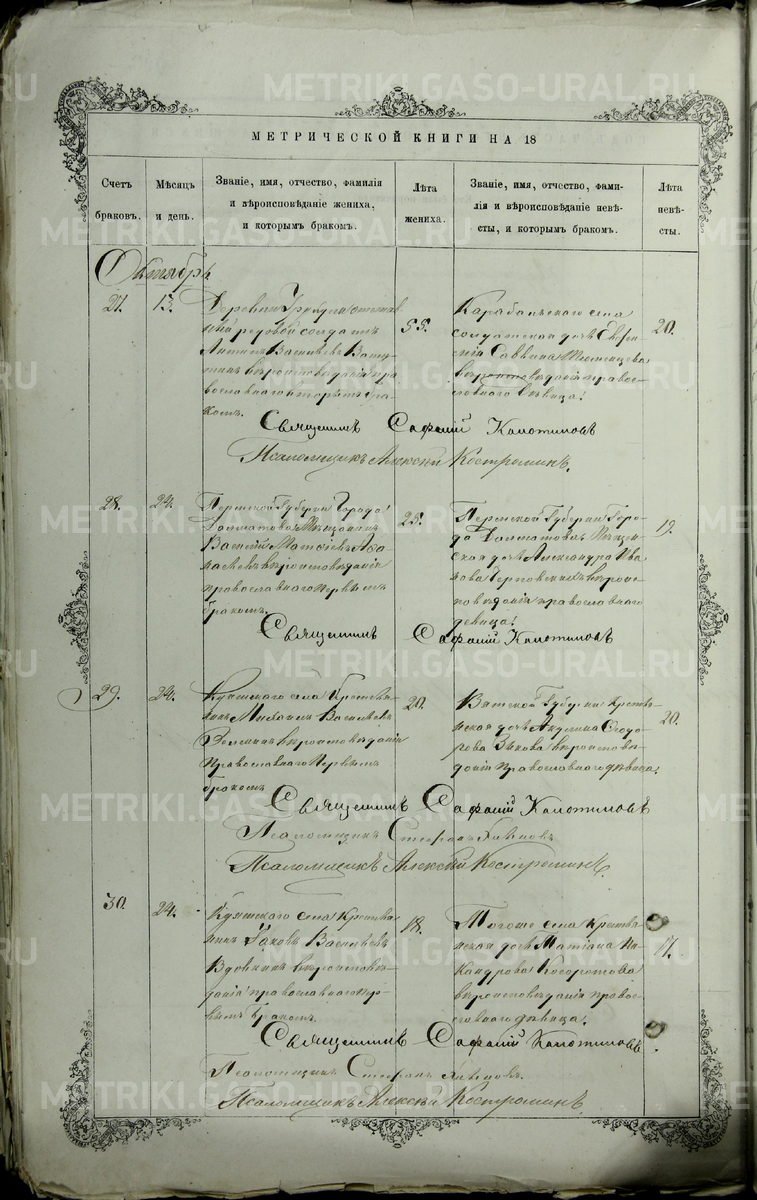 METRIKI.GASO-URAL.RU
МЕТРИЧЕСКОЙ КНИГИ НА 18
Счетъ браковъ.
Мѣсяцъ и день.
Званіе, имя, отчество, фамилія
и вѣроисповѣданіе жениха,
и которымъ бракомъ.
Лѣта жениха.
Званіе, имя, отчество, фами-
лія и вѣроисповѣданіе невѣ-
сты, и которымъ бракомъ.
Лѣта невѣ-
сты.
Октябрь
27. 13.
Деревни
рядовой солдатъ
Васильевъ
вѣроисповѣданія пра
вославнаго вторымъ бра
комъ.
55.
Карабольскаго села
солдатская дочь Евге
нія Саввина
вѣроисповѣданія правос
лавнаго девица.
20.
Священникъ Сафоній
Псаломщикъ Алексѣй Костроминъ.
28. 24.
Пермской Губерніи Города
Далматова Мѣщанинъ
Василій
вѣроисповѣданія
православнаго первымъ
бракомъ.
25.
Пермской Губерніи Горо
да Далматова Мѣщан
ская дочь Александра Ива
нова вѣроис
повѣданія православнаго
девица.
19.
Священникъ Сафоній
29. 24.
села Крестья
нинъ Михаилъ Васильевъ
вѣроисповѣданія
Православнаго Первымъ
бракомъ
20.
Вятской Губерніи Крестья
нская дочь Акулина Ѳедо
рова Зыкова вѣроисповѣ
данія Православнаго дѣвица.
20.
Священникъ Сафоній
Псаломщикъ Стефанъ
Псаломщикъ Алексѣй Костроминъ.
30. 24.
села Крестья
нинъ Яковъ Васильевъ
Вдовинъ вѣроисповѣ
данія православнаго пер
вымъ бракомъ.
18.
Тогоже села Крестья
нская дочь Татіана Ни
кандрова
вѣроисповѣданія правос
лавнаго дѣвица.
17.
Священникъ Сафоній
Псаломщикъ Стефанъ
Псаломщикъ Алексѣй Костроминъ